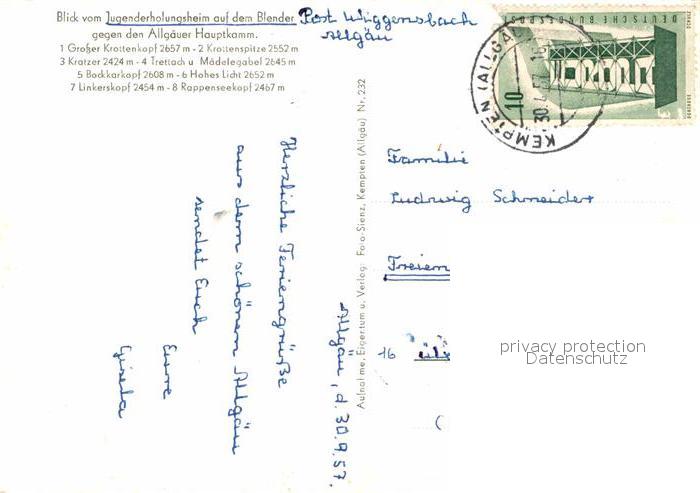 Blick vom Jugenderholungsheim auf dem Blender
gegen den Allgäuer Hauptkamm.
1 Großer Krottenkopf 2657 m - 2 Krottenspitze 2552 m
3 Kratzer 2424 m - 4 Trettach u Mädelegabel 2645 m
5 Bockkarkopf 2608 m - 6 Hohes Licht 2652 m
7 Linkerskopf 2454 m - 8 Rappenseekopf 2467 m
Post Wiggensbach
Allgäu
Allgäu, d. 30.9.57.
Herzliche Feriengrüße
aus dem schönen Allgäu
sendet Euch
Eure
Gisela
Aufnahme, Eigentum u. Verlag: Foto-Sienz, Kempten (Allgäu) Nr. 232
DEUTSCHE BUNDESPOST
KEMPTEN (ALLGÄU)
10
Familie
Ludwig Schneider
16
privacy protection
Datenschutz